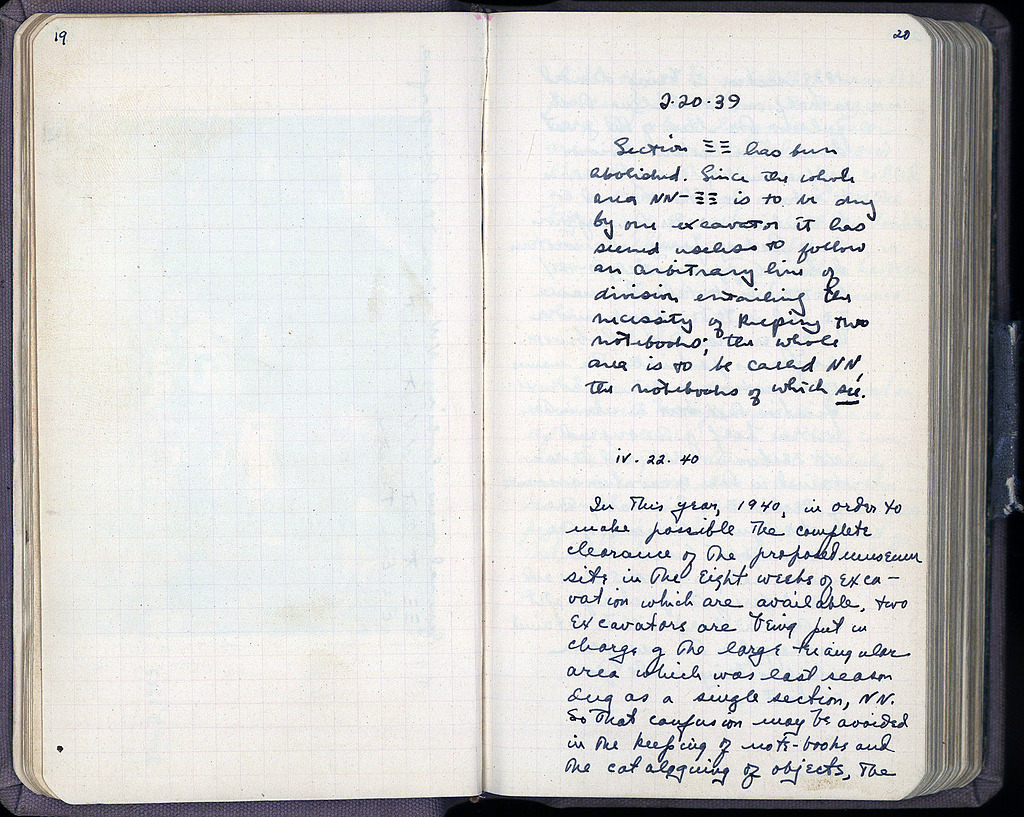 19
20
2.20.39
Section ΞΞ has been
abolished. Since the whole
area NN-ΞΞ is to be dug
by one excavator it has
seemed useless to follow
an arbitrary line of
division entailing the
necessity of keeping two
notebooks; the whole
area is to be called NN,
the notebooks of which see.
iv. 22. 40
In this year, 1940, in order to
make possible the complete
clearance of the proposed museum
site in the eight weeks of exca-
vation which are available, two
excavators are being put in
charge of the large triangular
area which was last season
dug as a single section, NN.
So that confusion may be avoided
in the keeping of note-books and
the cataloguing of objects, the